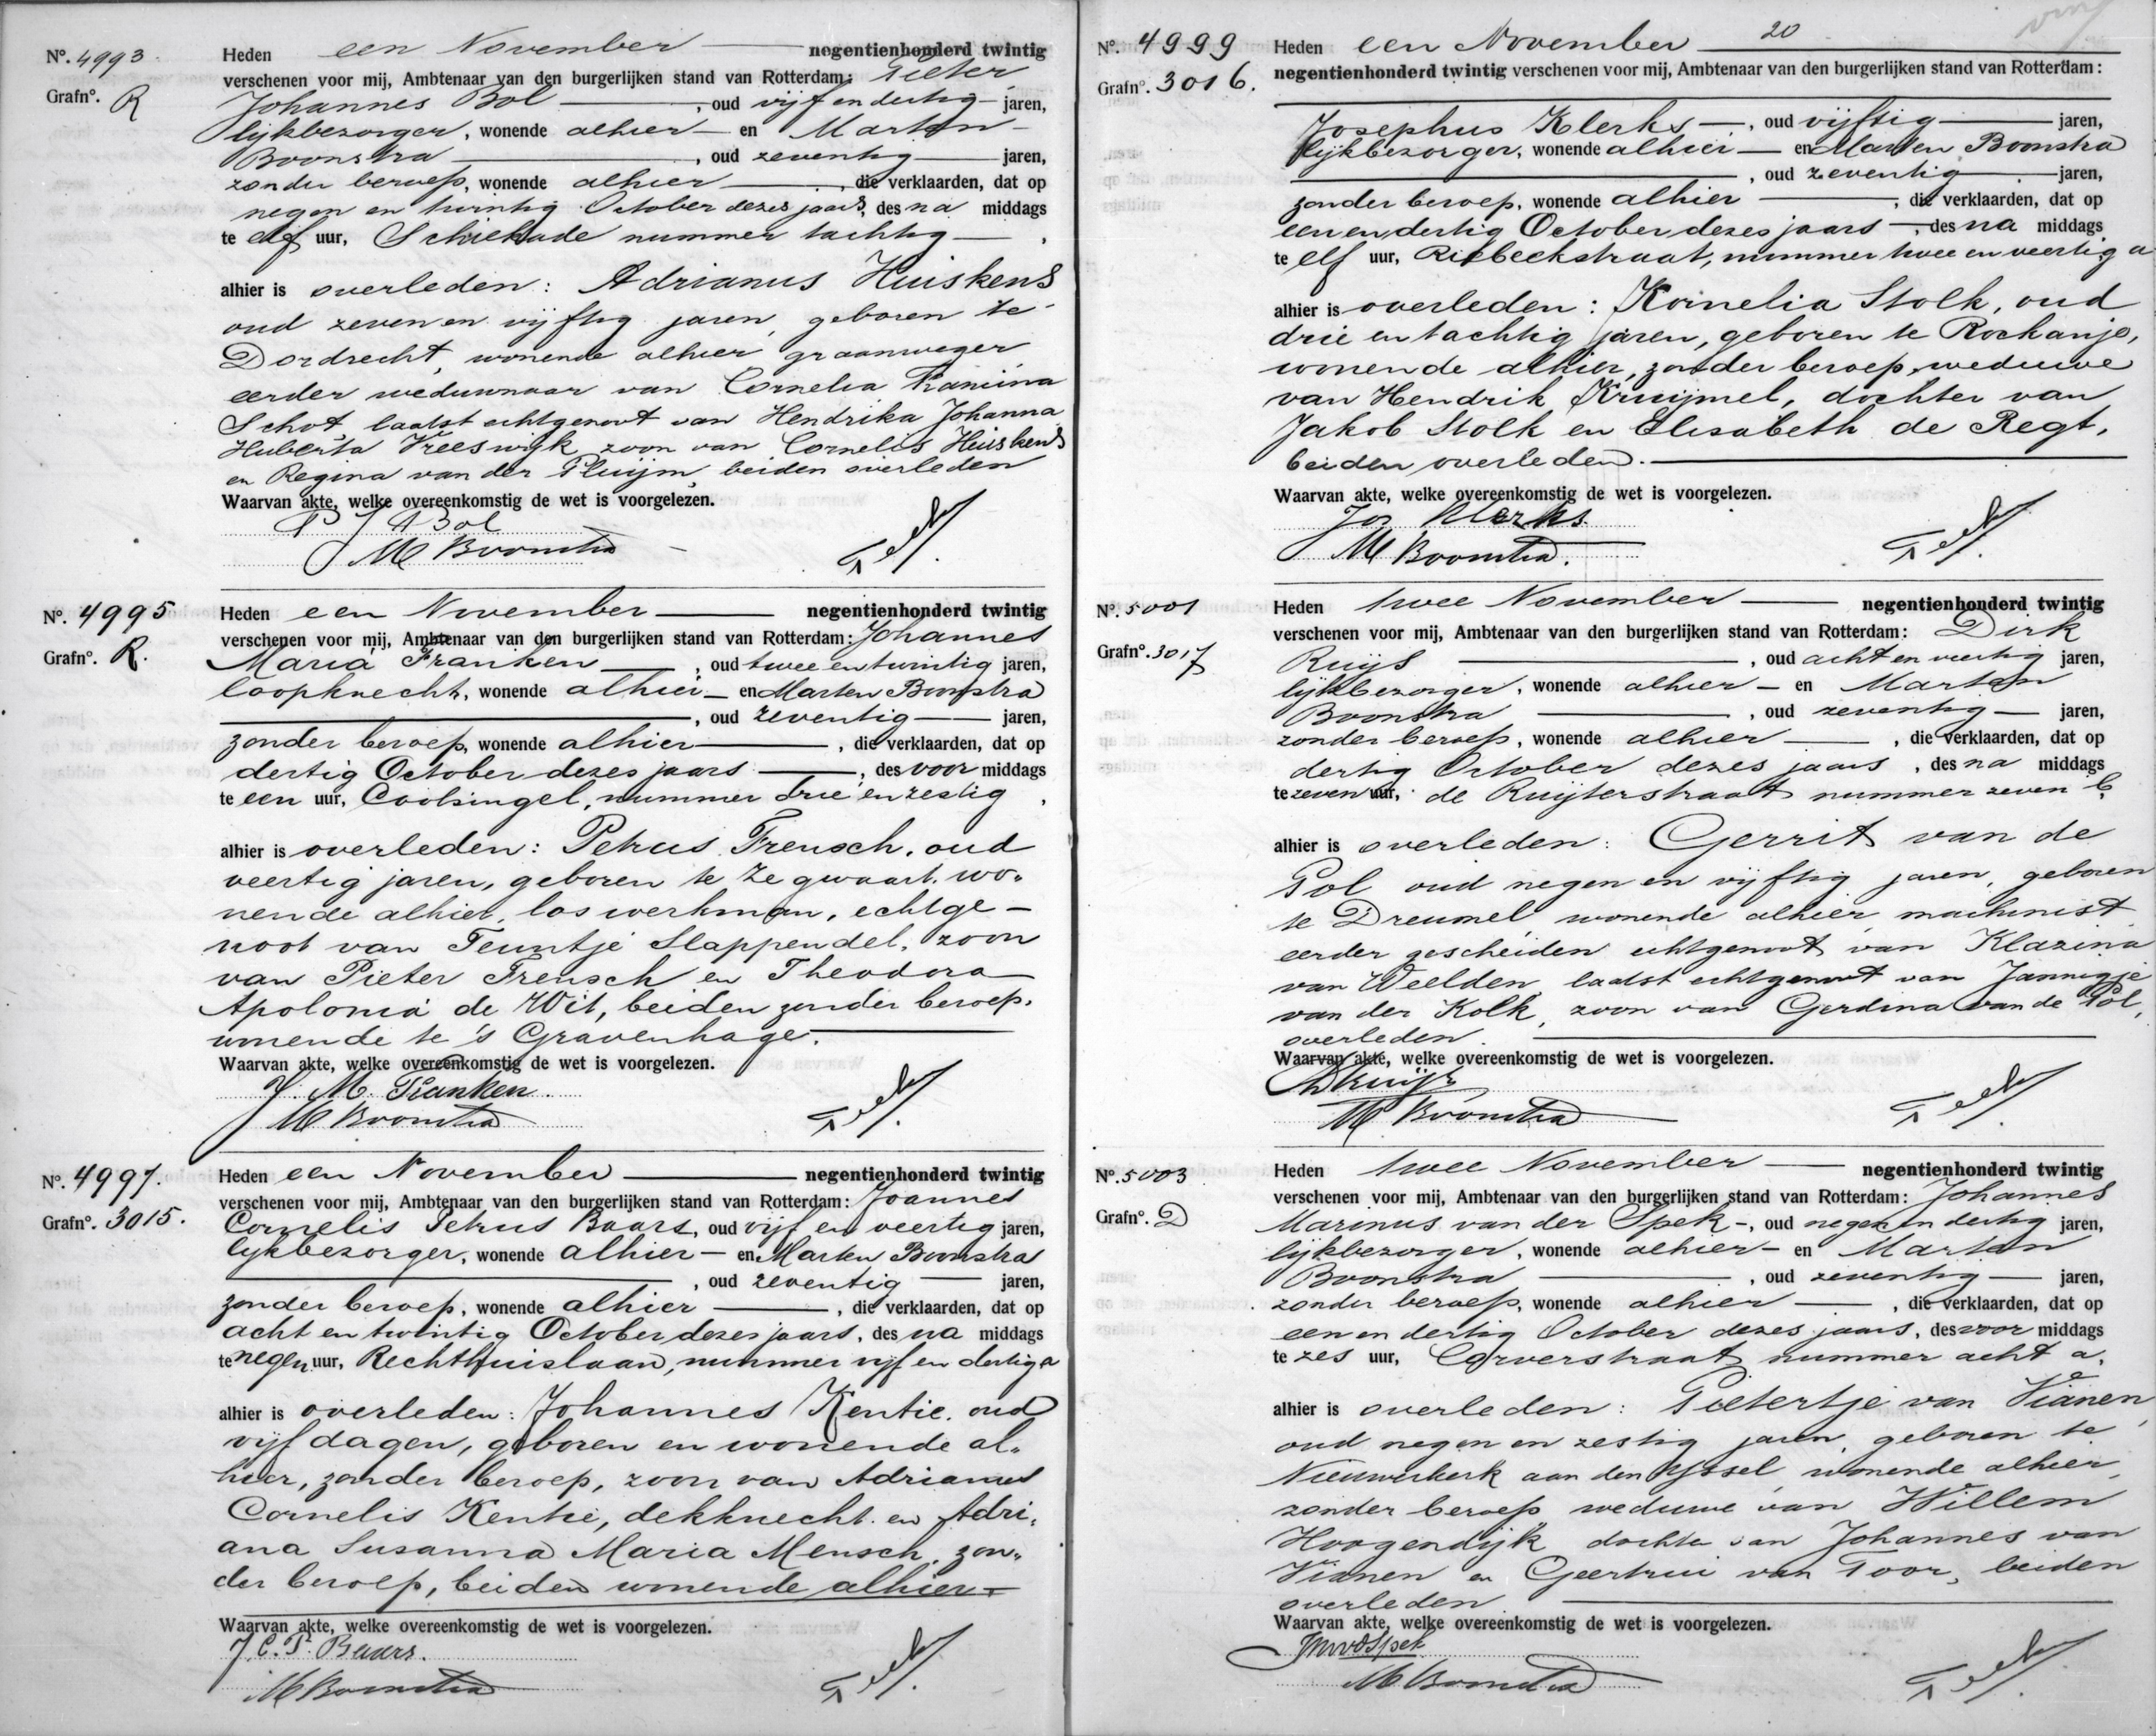 Nº. 4993.
Grafnº. R
Heden een November negentienhonderd twintig
verschenen voor mij, Ambtenaar van den burgerlijken stand van Rotterdam: Pieter
Johannes Bol, oud vijf en dertig jaren,
lijkbezorger, wonende alhier en Marten
Boonstra, oud zeventig jaren,
zonder beroep, wonende alhier, die verklaarden, dat op
negen en twintig October dezes jaars, des na middags
te elf uur, Schiekade nummer tachtig,
alhier is overleden: Adrianus Huiskens
oud zeven en vijftig jaren, geboren te
Dordrecht, wonende alhier, graanweger,
eerder weduwnaar van Cornelia
Schot, laatst echtgenoot van Hendrika Johanna
Huberta Vreeswijk, zoon van Cornelis Huiskens
en Regina van der Pluijm, beiden overleden
Waarvan akte, welke overeenkomstig de wet is voorgelezen.
P J A Bol
M Boonstra
Nº. 4995
Grafnº. R.
Heden een November negentienhonderd twintig
verschenen voor mij, Ambtenaar van den burgerlijken stand van Rotterdam: Johannes
Maria Franken, oud twee en twintig jaren,
loopknecht, wonende alhier en Marten Boonstra
, oud zeventig jaren,
zonder beroep, wonende alhier, die verklaarden, dat op
dertig October dezes jaars, des voor middags
te een uur, Coolsingel, nummer drie en zestig,
alhier is overleden: Petrus Frensch, oud
veertig jaren, geboren te Zegwaart, wo-
nende alhier, los werkman, echtge-
noot van Teuntje Slappendel, zoon
van Pieter Frensch en Theodora
Apolonia de Wit, beiden zonder beroep,
wonende te 's Gravenhage.
Waarvan akte, welke overeenkomstig de wet is voorgelezen.
J. M. Franken.
M Boonstra
Nº. 4997.
Grafnº. 3015.
Heden een November negentienhonderd twintig
verschenen voor mij, Ambtenaar van den burgerlijken stand van Rotterdam: Joannes
Cornelis Petrus Baars, oud vijf en veertig jaren,
lijkbezorger, wonende alhier en Marten Boonstra
, oud zeventig jaren,
zonder beroep, wonende alhier, die verklaarden, dat op
acht en twintig October dezes jaars, des na middags
te negen uur, Rechthuislaan, nummer vijf en dertig a
alhier is overleden: Johannes Kentie, oud
vijf dagen, geboren en wonende al-
hier, zonder beroep, zoon van Adrianus
Cornelis Kentie, dekknecht en Adri-
ana Susanna Maria Mensch, zon-
der beroep, beiden wonende alhier
Waarvan akte, welke overeenkomstig de wet is voorgelezen.
J. C. P. Baars.
M Boonstra
Nº. 4999
Grafnº. 3016.
Heden een November 20
negentienhonderd twintig verschenen voor mij, Ambtenaar van den burgerlijken stand van Rotterdam:
Josephus Klerks, oud vijftig jaren,
lijkbezorger, wonende alhier en Marten Boonstra
, oud zeventig jaren,
zonder beroep, wonende alhier, die verklaarden, dat op
een en dertig October dezes jaars, des na middags
te elf uur, Riebeekstraat, nummer twee en veertig a
alhier is overleden: Kornelia Stolk, oud
drie en tachtig jaren, geboren te Rockanje,
wonende alhier, zonder beroep, weduwe
van Hendrik Kruijmel, dochter van
Jakob Stolk en Elisabeth de Regt,
beiden overleden.
Waarvan akte, welke overeenkomstig de wet is voorgelezen.
Jos Klerks.
M Boonstra.
Nº. 5001
Grafnº. 3017
Heden twee November negentienhonderd twintig
verschenen voor mij, Ambtenaar van den burgerlijken stand van Rotterdam: Dirk
Ruijs, oud acht en veertig jaren,
lijkbezorger, wonende alhier en Marten
Boonstra, oud zeventig jaren,
zonder beroep, wonende alhier, die verklaarden, dat op
dertig October dezes jaars, des na middags
te zeven uur, de Ruijterstraat nummer zeven b,
alhier is overleden: Gerrit van de
Pol oud negen en vijftig jaren, geboren
te Dreumel, wonende alhier, machinist,
eerder gescheiden echtgenoot van Klazina
van Weelden, laatst echtgenoot van Jannigje
van der Kolk, zoon van Gerdina van de Pol,
overleden.
Waarvan akte, welke overeenkomstig de wet is voorgelezen.
D Ruijs
M Boonstra
Nº. 5003
Grafnº. D
Heden twee November negentienhonderd twintig
verschenen voor mij, Ambtenaar van den burgerlijken stand van Rotterdam: Johannes
Marinus van der Spek, oud negen en dertig jaren,
lijkbezorger, wonende alhier en Marten
Boonstra, oud zeventig jaren,
zonder beroep, wonende alhier, die verklaarden, dat op
een en dertig October dezes jaars, des voor middags
te zes uur, Carverstraat nummer acht a,
alhier is overleden: Pietertje van Vianen,
oud negen en zestig jaren, geboren te
Nieuwerkerk aan den IJssel, wonende alhier,
zonder beroep weduwe van Willem
Hoogendijk dochter van Johannes van
Vianen en Geertrui van Toor, beiden
overleden
Waarvan akte, welke overeenkomstig de wet is voorgelezen.
JMvdSpek
M Boonstra